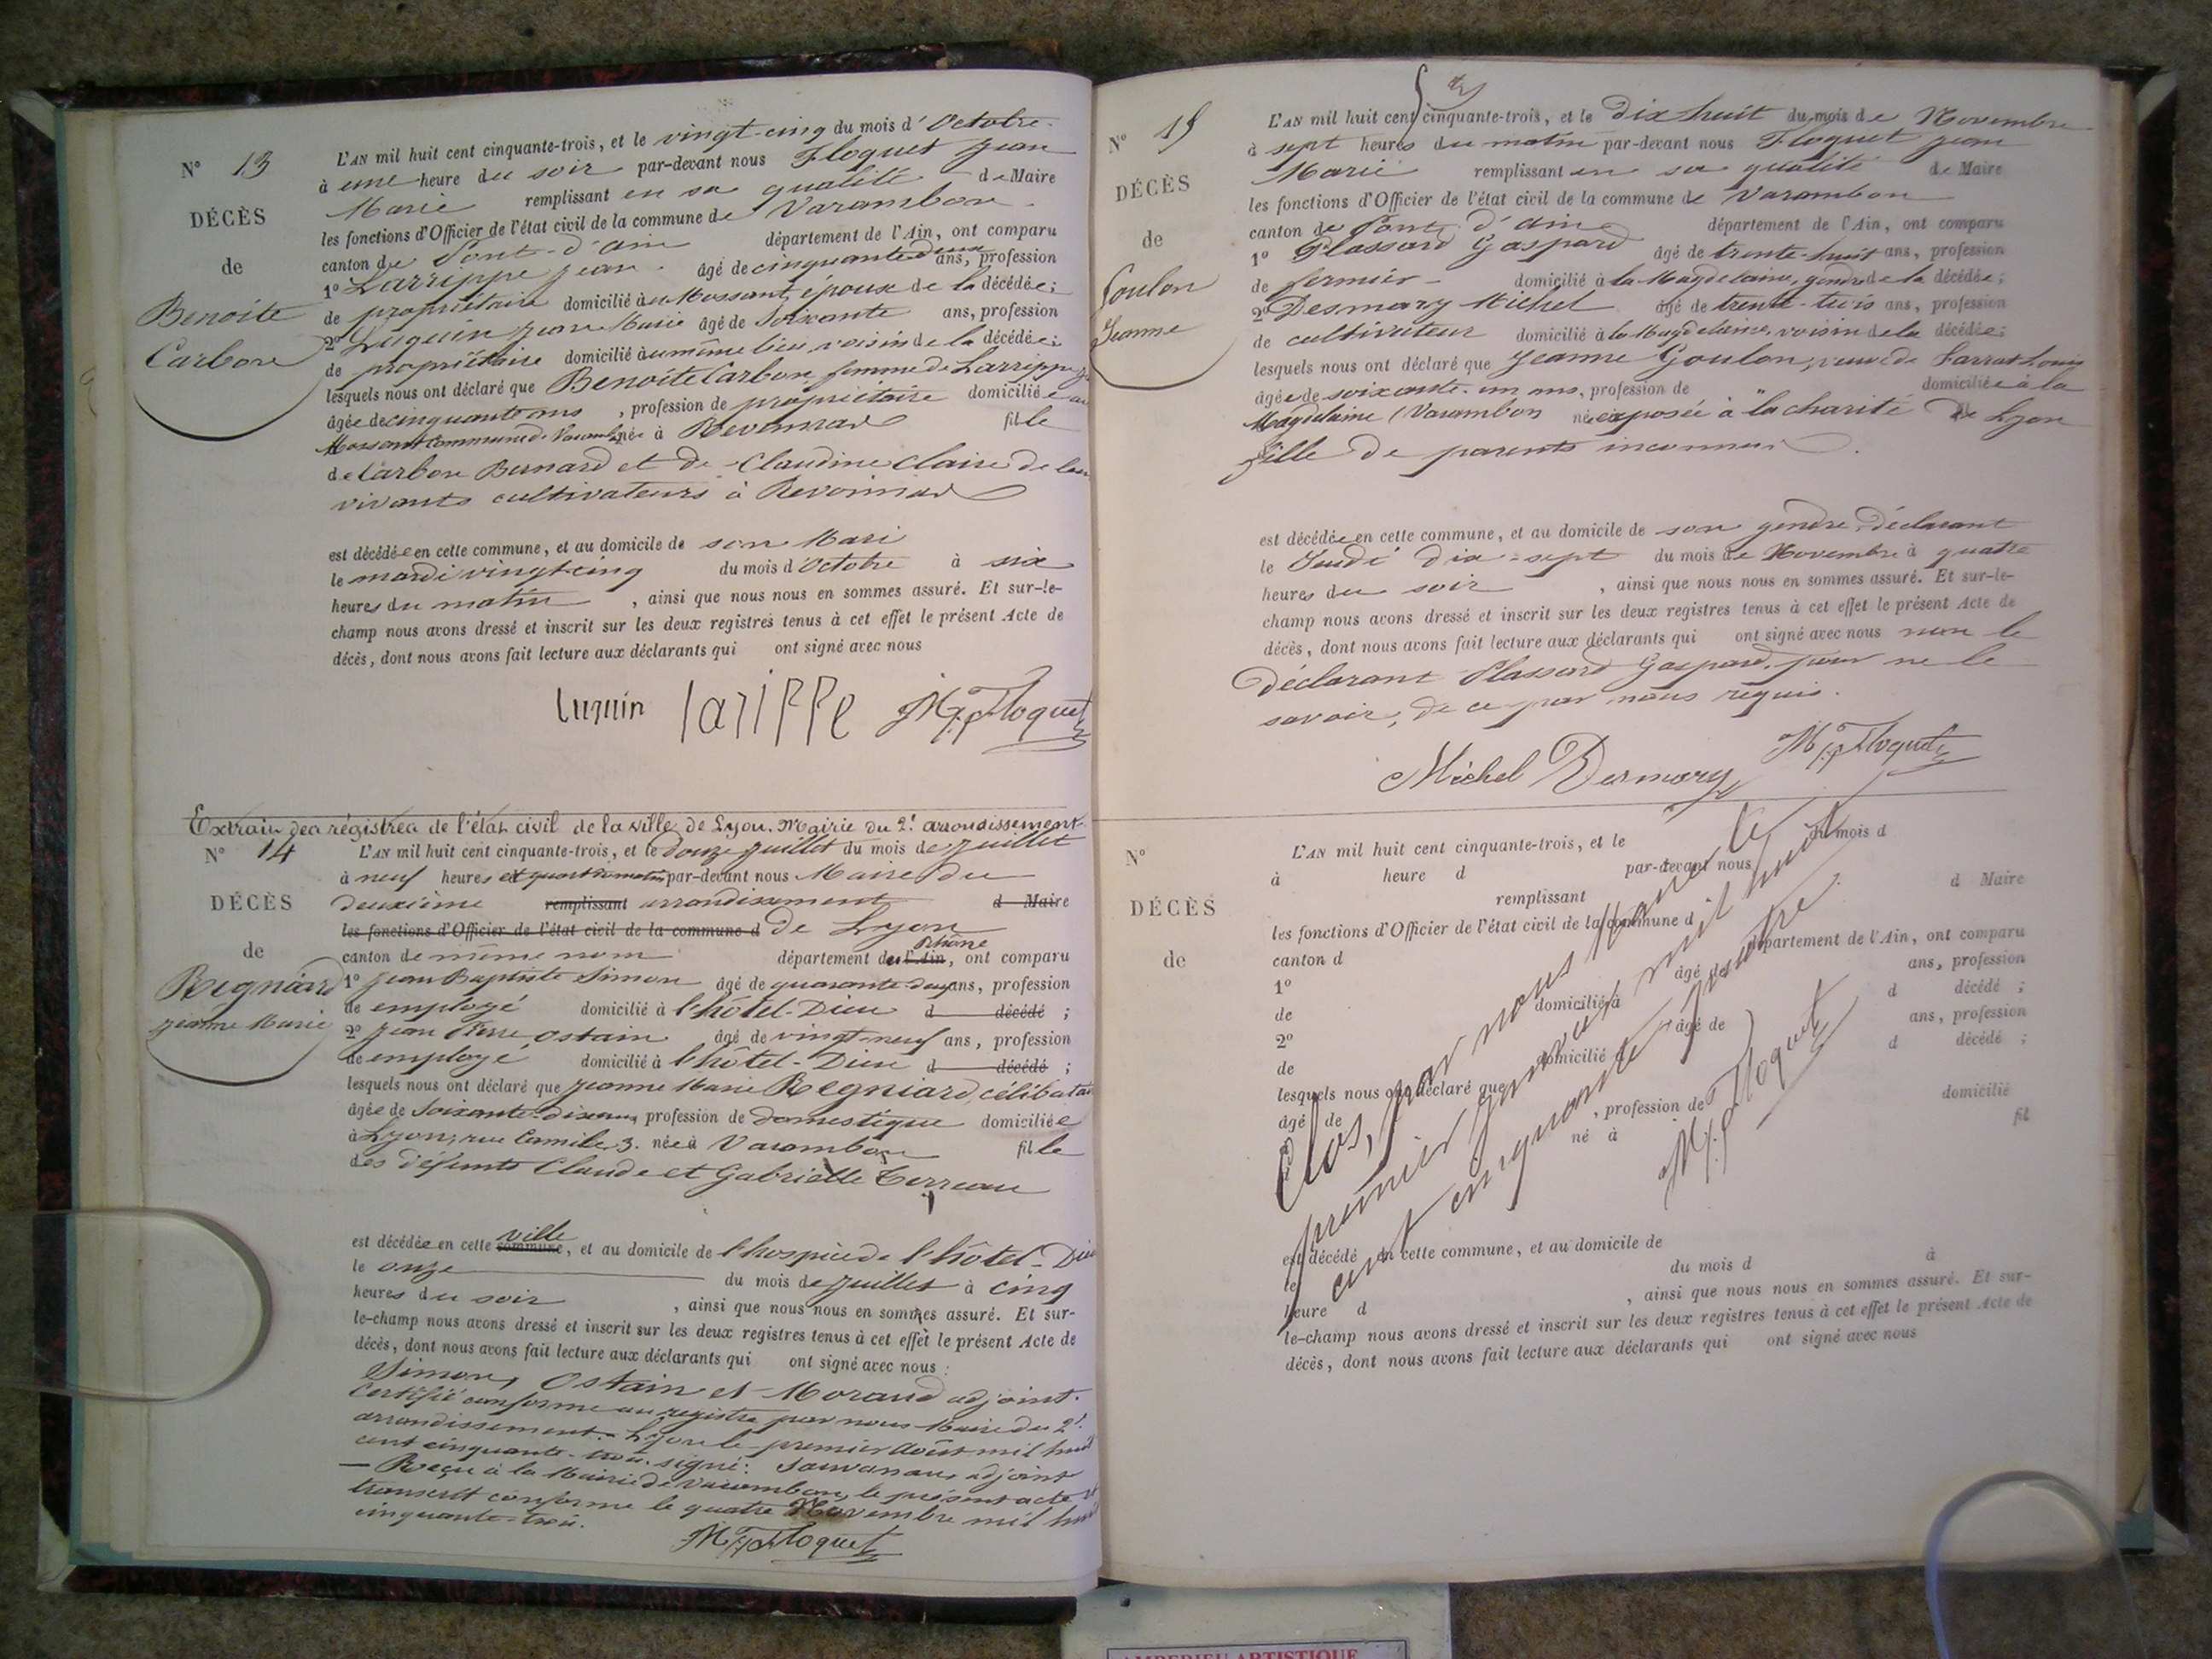 N° 13
DÉCÈS
de
Benoite
Carbon
L'AN mil huit cent cinquante-trois, et le vingt-cinq du mois d'Octobre
à une heure du soir par-devant nous Floquet Jean
Marie remplissant en sa qualité de Maire
les fonctions d'Officier de l'état civil de la commune de Varambon
canton de Pont-d'ain département de l'Ain, ont comparu
1° Larrippe Jean âgé de cinquante deux ans, profession
de propriétaire domicilié au Mossant, époux de la décédée;
2° Luquin Jean Marie âgé de soixante ans, profession
de propriétaire domicilié au même lieu, voisin de la décédée;
lesquels nous ont déclaré que Benoite Carbon femme de Larrippe
âgée de cinquante ans, profession de propriétaire domiciliée au
Mossant commune de Varambon née à Revonnas fille
de Carbon Bernard et de Claudine Claire de leur
vivants cultivateurs à Revonnas
est décédée en cette commune, et au domicile de son Mari
le mardi vingt-cinq du mois d'Octobre à six
heures du matin, ainsi que nous nous en sommes assuré. Et sur-le-
champ nous avons dressé et inscrit sur les deux registres tenus à cet effet le présent Acte de
décès, dont nous avons fait lecture aux déclarants qui ont signé avec nous
Luquin larippe Floquet
Extrait des régistres de l'état civil de la ville de Lyon. Mairie du 2e arrondissement
N° 14
DÉCÈS
de
Regniard
Jeanne Marie
L'AN mil huit cent cinquante-trois, et le douze juillet du mois de juillet
à neuf heures et quart du matin par-devant nous Maire du
deuxième remplissant arrondissement d Maire
les fonctions d'Officier de l'état civil de la commune d de Lyon
canton de même nom département de l'Ain Rhône, ont comparu
1° Jean Baptiste Simon âgé de quarante deux ans, profession
de employé domicilié à l'hôtel-Dieu d décédé ;
2° Jean Pierre Ostain âgé de vingt-neuf ans, profession
de employé domicilié à l'hôtel-Dieu d décédé ;
lesquels nous ont déclaré que Jeanne Marie Regniard, célibataire
âgée de soixante-dix ans, profession de domestique domiciliée
à Lyon, rue Camile 3. née à Varambon fille
des défunts Claude et Gabrielle Terreau
est décédée en cette commune ville, et au domicile de l'hospice de l'hôtel-Dieu
le onze du mois de juillet à cinq
heures du soir, ainsi que nous nous en sommes assuré. Et sur-
le-champ nous avons dressé et inscrit sur les deux registres tenus à cet effet le présent Acte de
décès, dont nous avons fait lecture aux déclarants qui ont signé avec nous :
Simon, Ostain et Morand adjoint.
Certifié conforme au registre par nous Maire du 2e
arrondissement. Lyon le premier Août mil huit
cent cinquante-trois. signé: adjoint
— Reçu à la Mairie de Varambon, le présent acte et
transcrit conforme le quatre Novembre mil huit
cinquante-trois.
Floquet
N° 15
DÉCÈS
de
Goulon
Jeanne
L'AN mil huit cent cinquante-trois, et le dix huit du mois de Novembre
à sept heures du matin par-devant nous Floquet Jean
Marie remplissant en sa qualité de Maire
les fonctions d'Officier de l'état civil de la commune de Varambon
canton de Pont d'ain département de l'Ain, ont comparu
1° Plassard Gaspard âgé de trente-huit ans, profession
de fermier domicilié à la Magdelaine, gendre de la décédée;
2° Desmary Michel âgé de trente-trois ans, profession
de cultivateur domicilié à la Magdelaine, voisin de la décédée;
lesquels nous ont déclaré que Jeanne Goulon, veuve de Louis
âgée de soixante-un ans, profession de " domiciliée à la
Magdelaine (Varambon née exposée à la charité de Lyon
fille de parents inconnus.
est décédée en cette commune, et au domicile de son gendre, déclarant
le Jeudi dix-sept du mois de Novembre à quatre
heures du soir, ainsi que nous nous en sommes assuré. Et sur-le-
champ nous avons dressé et inscrit sur les deux registres tenus à cet effet le présent Acte de
décès, dont nous avons fait lecture aux déclarants qui ont signé avec nous non le
déclarant Plassard Gaspard, pour ne le
savoir, de ce par nous requis.
Michel Desmary Floquet
N°
DÉCÈS
de
L'AN mil huit cent cinquante-trois, et le du mois d
à heure d par-devant nous
remplissant d Maire
les fonctions d'Officier de l'état civil de la commune d
canton d département de l'Ain, ont comparu
1° âgé de ans, profession
de domicilié à d décédé ;
2° âgé de ans, profession
de domicilié à d décédé ;
lesquels nous ont déclaré que
âgé de , profession de domicilié
né à fil
est décédé en cette commune, et au domicile de
le du mois d à
heure d , ainsi que nous nous en sommes assuré. Et sur-
le-champ nous avons dressé et inscrit sur les deux registres tenus à cet effet le présent Acte de
décès, dont nous avons fait lecture aux déclarants qui ont signé avec nous
Clos, par nous Maire le
premier Janvier mil huit
cent cinquante quatre.
Floquet
AMBERIEU ARTISTIQUE